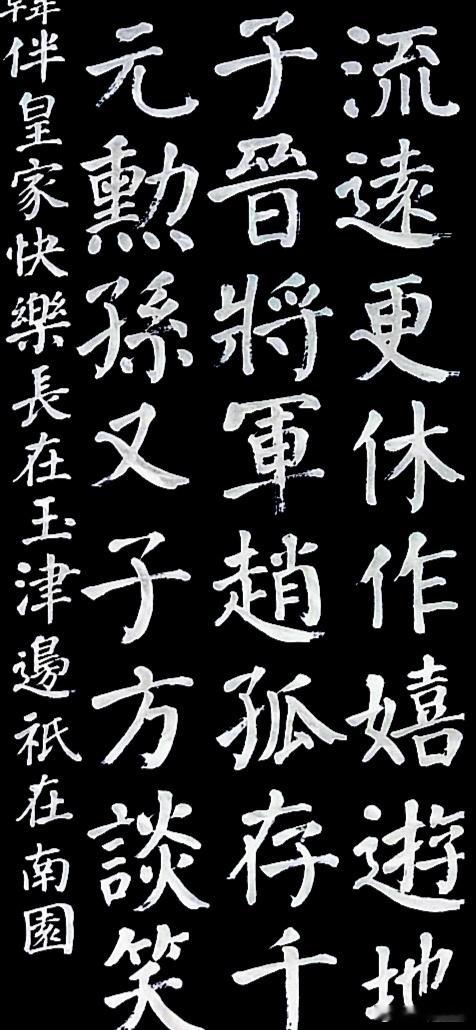 流遠更休作嬉遊地
子晉將軍趙孤存千
元勲孫又子方談笑
伴皇家快樂長在玉津邊祇在南園